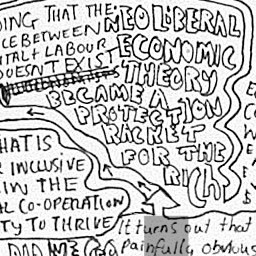 ING THAT THE
CE BETWEEN
ITAL + LABOUR
DOESN'T EXIST
NEOLIBERAL
ECONOMIC
THEORY
BECAME A
PROTECTION
RACKET
FOR THE
RICH
HAT IS
R INCLUSIVE
IN THE
AL CO-OPERATION
TY TO THRIVE
It turns out that
painfully obvious